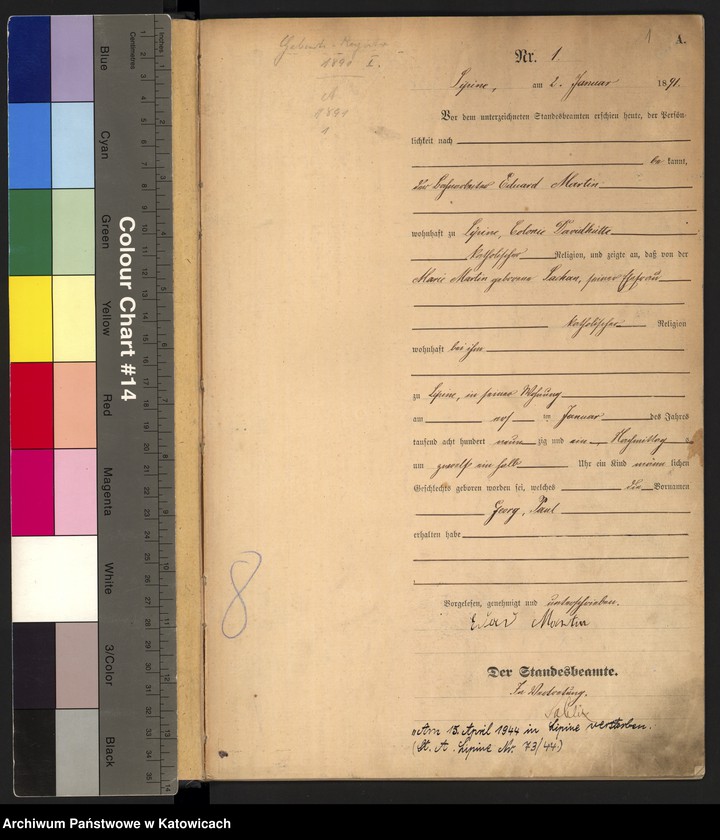 Blue
Cyan
Green
Yellow
Red
Magenta
White
3/Color
Black
Colour Chart #14
Centimetres
Inches
1
A.
Nr. 1.
Lipine, am 2. Januar 1891.
Vor dem unterzeichneten Standesbeamten erschien heute, der Persön-
lichkeit nach
be kannt,
der Eduard Martin
wohnhaft zu Lipine, Colonie Davidhütte
katholischer Religion, und zeigte an, daß von der
Marie Martin geborene seiner Ehefrau
katholischer Religion
wohnhaft bei ihm
zu Lipine, in seiner Wohnung
am Januar des Jahres
tausend acht hundert neun zig und ein Nachmittag
um zwölf ein halb Uhr ein Kind männ lichen
Geschlechts geboren worden sei, welches die Vornamen
Georg, Paul
erhalten habe
8
Vorgelesen, genehmigt und unterschrieben.
Martin
Der Standesbeamte.
In Vertretung.
Am 15. April 1944 in Lipine verstorben.
(St. A. Lipine Nr. 73/44)
Archiwum Państwowe w Katowicach